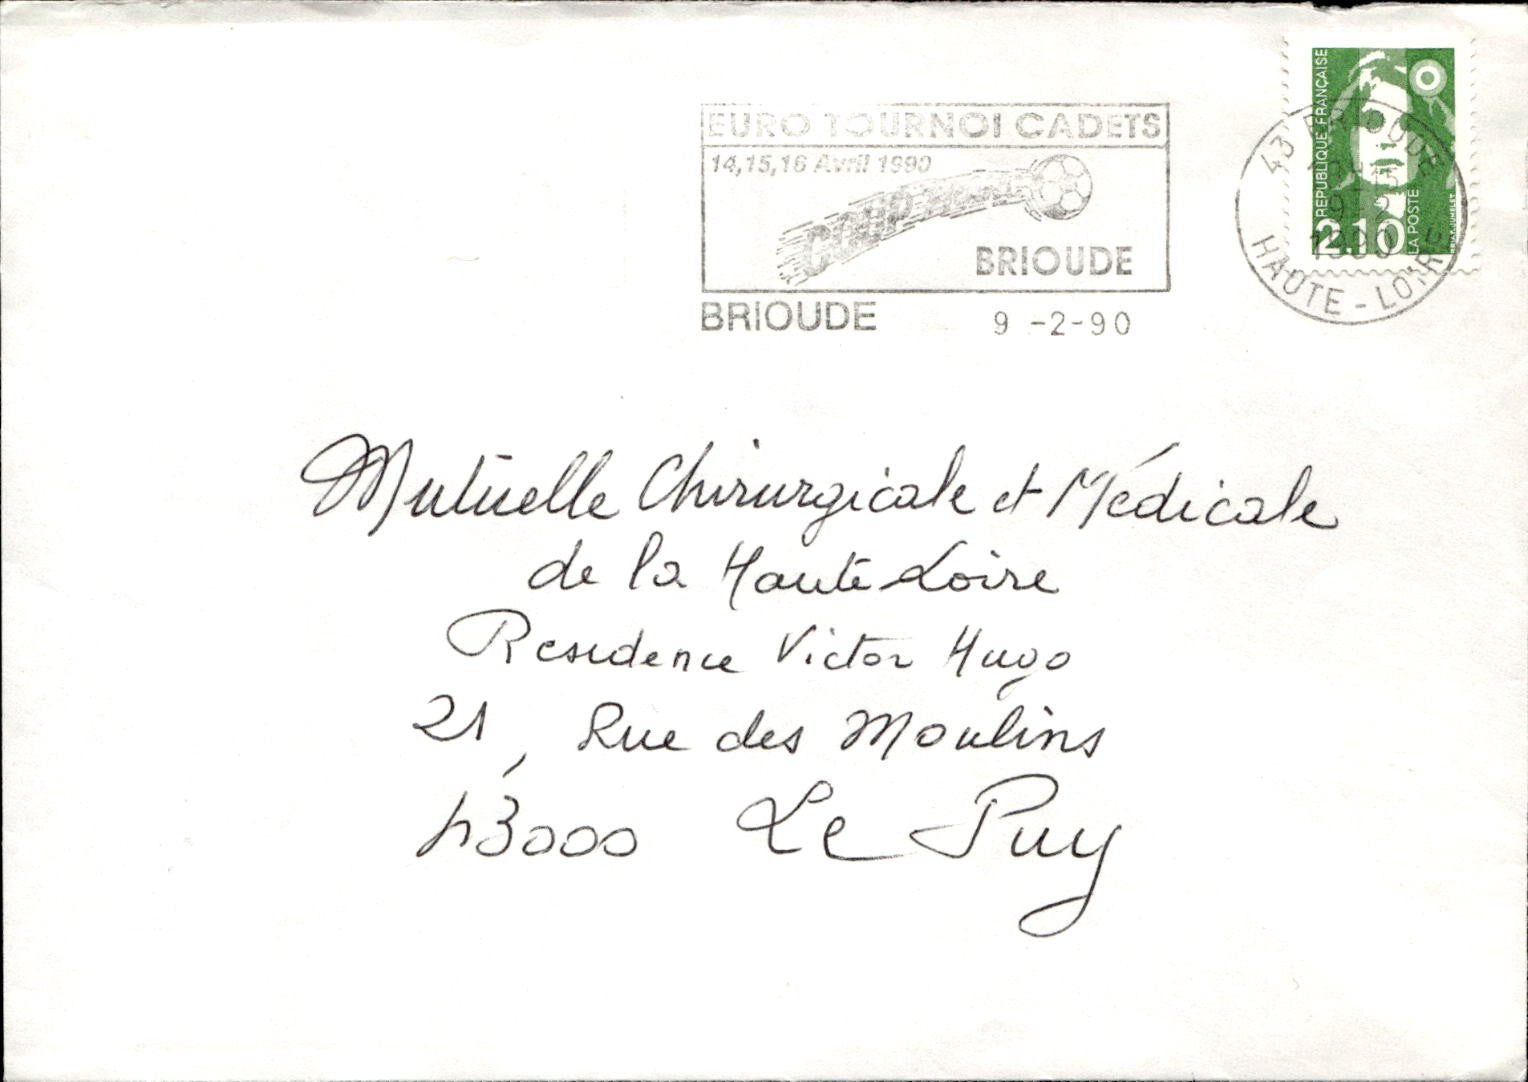 EURO TOURNOI CADETS
14,15,16 Avril 1990
BRIOUDE
BRIOUDE
9 -2-90
43 BRIOUDE
9-2
1990
HAUTE - LOIRE
REPUBLIQUE FRANÇAISE
2.10
LA POSTE
Mutuelle Chirurgicale et Médicale
de la Haute Loire
Residence Victor Hugo
21, Rue des Moulins
43000 Le Puy